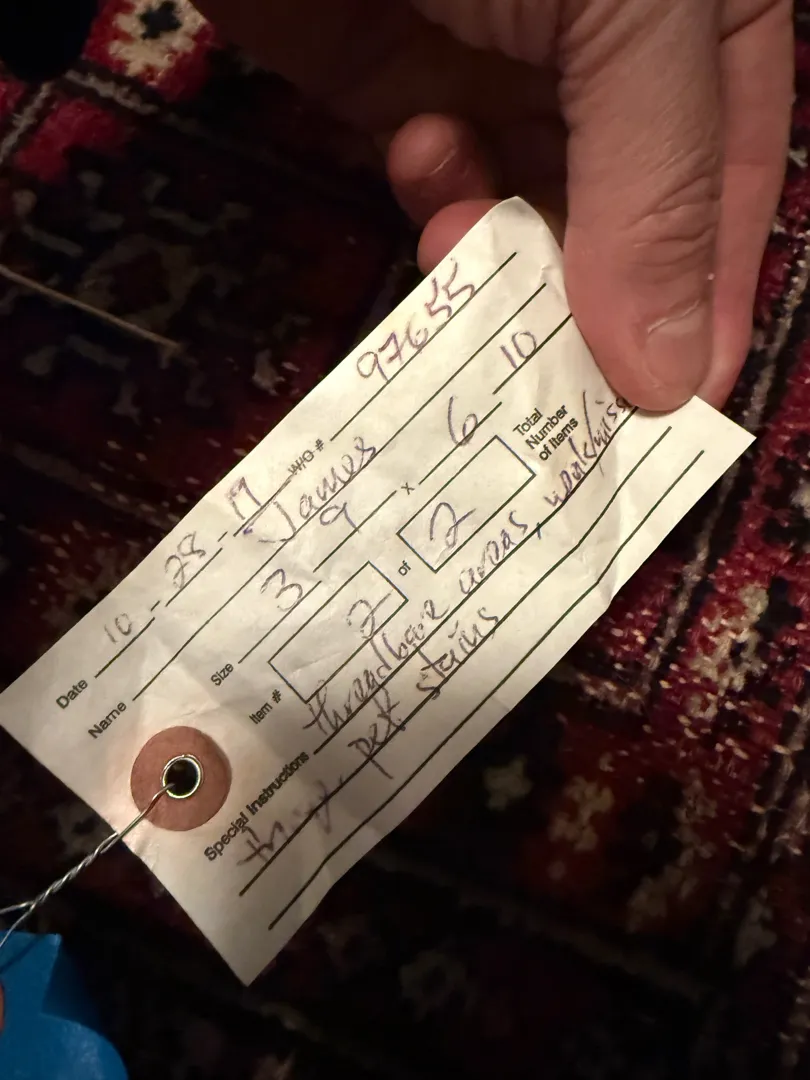 Date 10-28-17 W/O # 97655
Name James
Size 3 9 x 6 10
Item # 2 of 2 Total Number of Items
Special Instructions threadbare areas, weak/miss
pet stains